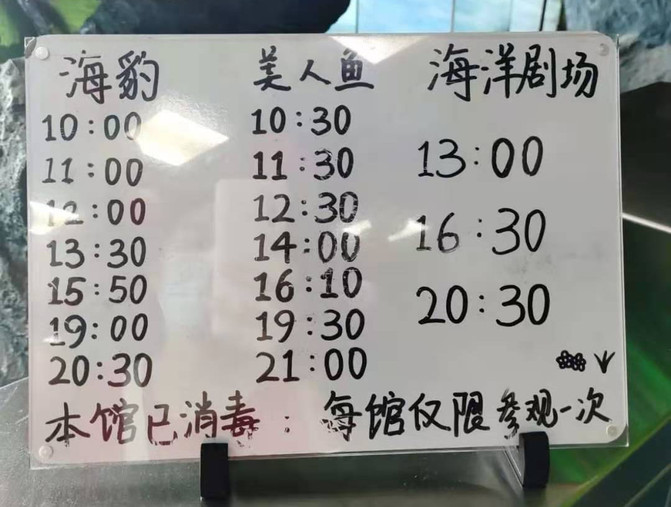 海豹 美人鱼 海洋剧场
10:00 10:30
11:00 11:30 13:00
12:00 12:30
13:30 14:00 16:30
15:50 16:10
19:00 19:30 20:30
20:30 21:00
本馆已消毒：每馆仅限参观一次